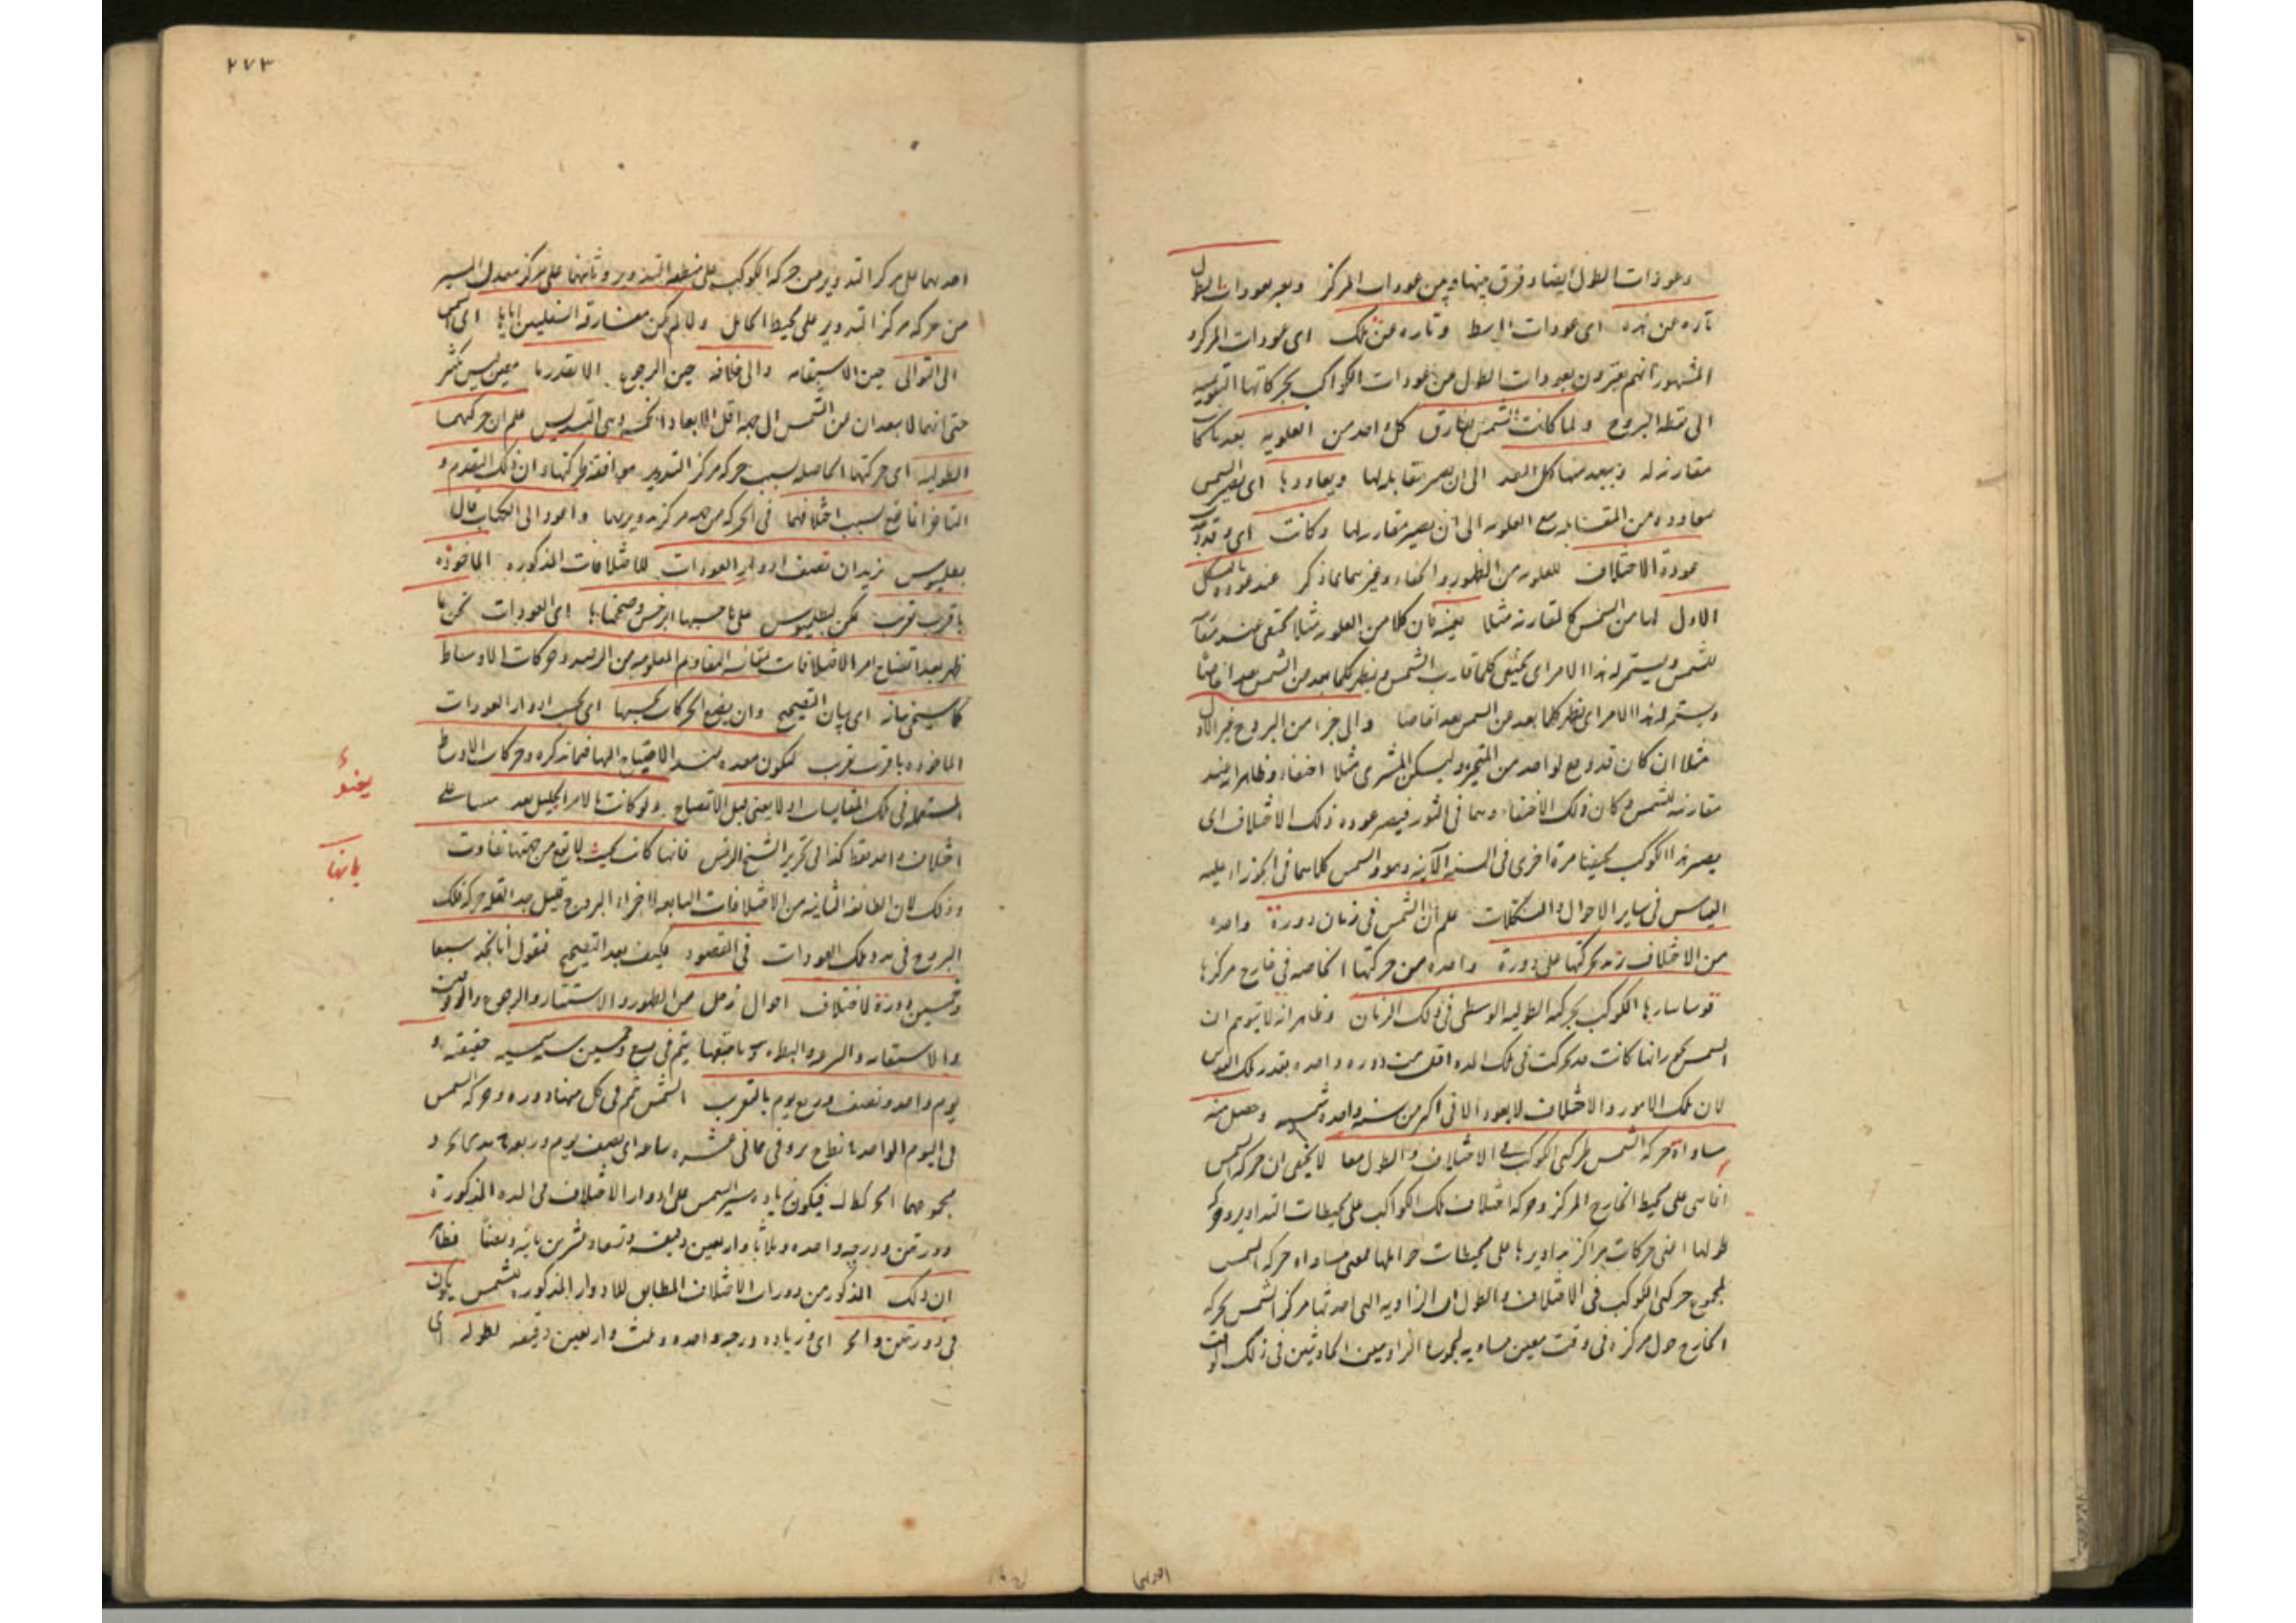 وعودات الطول ايضا وفرق بينها وبين عودات المركز ويعبر بعودات الطول
تارة عن هذه اى عودات الوسط وتارة عن تلك اى عودات المركز و
المشهور انهم يعبرون بعودات الطول عن عودات الكواكب بحركاتها التقويمية
الى نقطة البروج ولما كانت الشمس تفارق كل واحد من العلوية بعد ما كانت
مقارنة له ويبعد منها كل البعد الى ان يصير مقابلا لها ويعاودها اى يصير الشمس
معاودة من المقابلة مع العلوية الى ان يصير مقارنا لها وكانت
عودة الاختلاف للعلوية من الظهور والخفاء وغيرهما مما ذكر عند عودة الشكل
الاول لها من الشمس كالمقارنة مثلا فان كلا من العلوية مثلا يختفى عند
للشمس ويستمر له هذا الامر اى يختفى كلما قارب الشمس ويظهر كلما بعد من الشمس بعدا خاصا
ويستمر له هذا الامر اى يظهر كلما بعد من الشمس بعدا خاصا والى جزء من البروج غير الاول
مثلا ان كان قد وقع لواحد من المتحيرة وليكن المشترى مثلا اختفاء وظاهر انه عند
مقارنته للشمس وكان ذلك الاختفاء وهما فى الثور فيصير عودة ذلك الاختلاف اى
يصير هذا الكوكب مختفيا مرة اخرى فى السنة الآتية وهو والشمس كلاهما فى الجوزاء وعليه
القياس فى ساير الاحوال والتشكلات علم ان الشمس فى زمان دورة واحدة
من الاختلاف تزيد حركتها على دورة واحدة من حركتها الخاصة فى خارج مركزها
قوسا سارها الكوكب بحركته الطولية الوسطى فى ذلك الزمان وظاهر انه لا يتوهم ان
الشمس كانت قد تحركت فى تلك المدة اقل من دورة واحدة بقدر تلك القوس
لان تلك الامور والاختلاف لا يعود الا فى اكثر من سنة واحدة شمسية وحصل منه
مساواة حركة الشمس لحركتى الكوكب فى الاختلاف والطول معا لا يخفى ان حركة الشمس
انما هى على محيط الخارج المركز وحركة اختلاف تلك الكواكب على محيطات التداوير وحركة
طولها اعنى حركات مراكز تداويرها على محيطات حواملها فمعنى مساواة حركة الشمس
لمجموع حركتى الكوكب فى الاختلاف والطول ان الزاوية التى احدثها مركز الشمس بحركة
الخارج حول مركزه فى وقت معين مساوية لمجموع الزاويتين الحادثتين فى ذلك الوقت
احديهما
٢٧٣
احديهما على مركز التدوير من حركة الكوكب على منطقة التدوير وثانيهما على مركز معدل المسير
من حركة مركز التدوير على محيط الحامل ولما لم يكن مفارقة السفليين اياها اى الشمس
الى التوالى حين الاستقامة والى خلافه حين الرجوع الا بقدر ما معين ليس بكثير
حتى انهما لا يبعدان من الشمس الى جهة اقل الابعاد وهى التسديس علم ان حركتهما
الطولية اى حركتهما الحاصلة بسبب حركة مركز التدوير موافقة لحركتها وان ذلك التقدم و
التاخر انما يقع بسبب اختلافهما فى الحركة من جهة مركز تدويرهما واعود الى الكتاب قال
بطلميوس نريد ان نصف ادوار العودات للاختلافات المذكورة الماخوذة
باقرب تقرب يمكن بطلميوس على ما حسبها ابرخس وصححناها اى العودات نحن بما
ظهر بعد اتضاح امر الاختلافات بمقايسة المقادير المعلومة من الرصد وحركات الاوساط
كما سيجئ بيانه اى بيان التصحيح وان يضع الحركات بحسبها اى بحسب ادوار العودات
الماخوذة باقرب تقرب ليكون معدة عند الاحتياج اليها فيما نذكره وحركات الاوساط
المستعملة فى تلك المقايسات اولا يعنى قبل الاتضاح ولو كانت بالامر الجليل بعد
اختلاف واحد فقط كذا فى تحرير الشيخ الرئيس فانها كانت بحيث لا يقع من جهتها تفاوت
وذلك لان الطائفة الثانية من الاختلافات التابعة لاجزاء البروج قليل جدا لقلة حركة فلك
البروج فى مدة تلك العودات فى المقصود فكيف بعد التصحيح فنقول انا نجد سبعا
وخمسين دورة لاختلاف احوال زحل من الظهور والاستتار والرجوع والوقوف
والاستقامة والسرعة والبطء وما يتبعها يتم فى تسع وخمسين سنة شمسية حقيقية و
يوم واحد ونصف وربع يوم بالتقريب الشمس تتم فى كل منها دورة وحركة الشمس
فى اليوم الواحد وفى ثمانى عشرة ساعة اى نصف يوم وربعه و
مجموعهما فيكون زيادة سير الشمس على ادوار الاختلاف فى المدة المذكورة
دورتين ودرجة واحدة وثلاثا واربعين دقيقة فظاهر
ان ذلك المذكور من دورات الاختلاف المطابق للادوار المذكورة للشمس يكون
فى دورتين و اى زيادة درجة واحدة وثلث واربعين دقيقة لطوله اى
يخنو
بانها